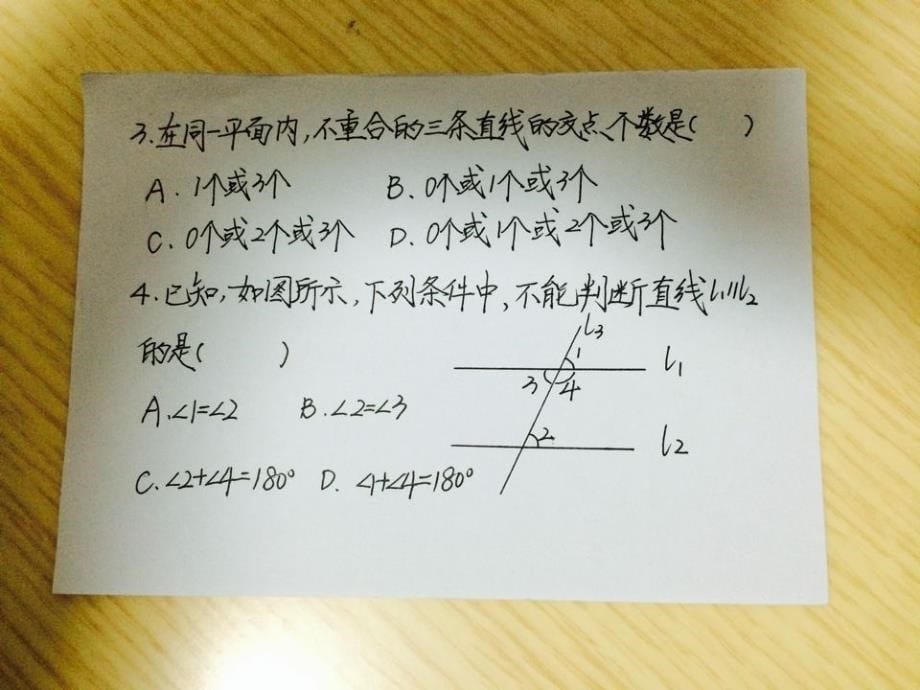 3.在同一平面内,不重合的三条直线的交点个数是( )
A. 1个或3个 B. 0个或1个或3个
C. 0个或2个或3个 D. 0个或1个或2个或3个
4.已知,如图所示,下列条件中,不能判断直线l1//l2
的是( )
l3
1
l1
3 4
A.∠1=∠2 B.∠2=∠3
2
l2
C.∠2+∠4=180° D. ∠1+∠4=180°